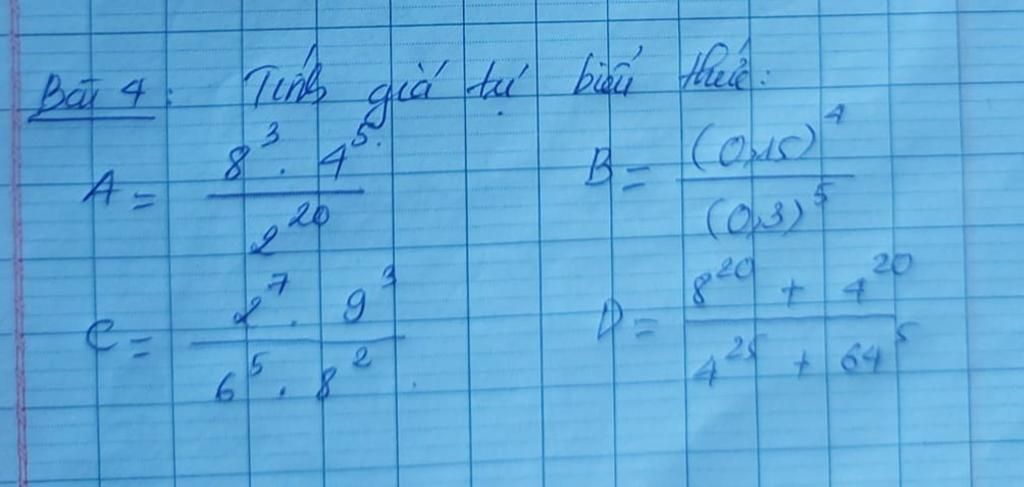 Bài 4: Tính giá trị biểu thức:
A = \frac{8^3 . 4^5}{2^{20}} B = \frac{(0,15)^4}{(0,3)^5}
C = \frac{2^7 . 9^3}{6^5 . 8^2} D = \frac{8^{20} + 4^{20}}{4^{25} + 64^5}